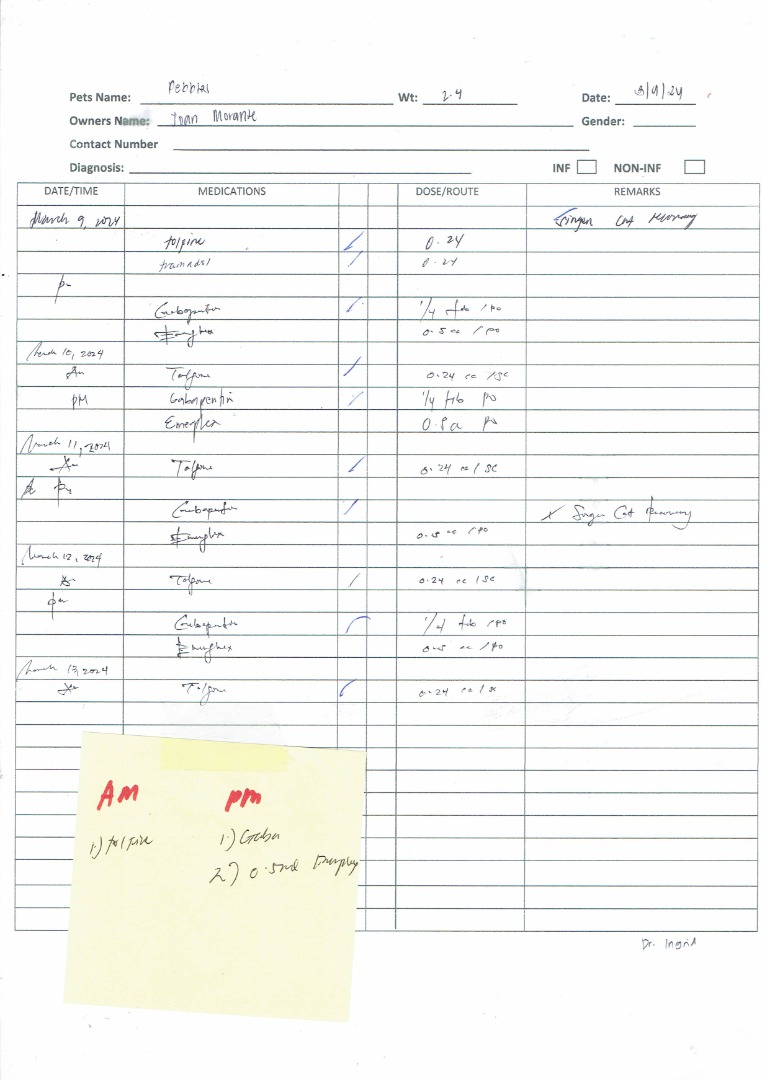 Pets Name: Pebbles Wt: 2.4 Date: 3/9/24
Owners Name: Morante Gender:
Contact Number
Diagnosis: INF NON-INF
DATE/TIME MEDICATIONS DOSE/ROUTE REMARKS
March 9, 2024 Cat recovery
tolpine 0.24
tramadol 0.24
pm
Gabapentin 1/4 tab / po
0.5 cc / po
March 10, 2024
Am Tolpine 0.24 cc / sc
PM Gabapentin 1/4 tab po
po
March 11, 2024
Am Tolpine 0.24 cc / sc
pm
Gabapentin Cat Recovery
cc / po
March 12, 2024
Am Tolpine 0.24 cc / sc
pm
Gabapentin 1/4 tab / po
cc / po
March 13, 2024
Am Tolpine 0.24 cc / sc
AM pm
1.) tolpine 1.) Gaba
2.) 0.5ml
Dr. Ingrid